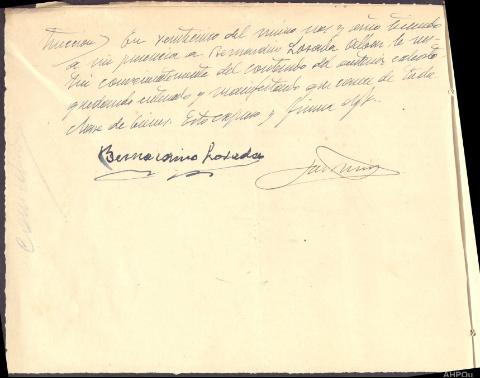 en veintiuno del mismo mes y año teniendo
a mi presencia a Bernardino Losada Albar le no-
del contenido del anterior
quedando enterado y manifestando que carece de toda
clase de bienes. Esto expuso y firma
Bernardino Losada
AHPOu